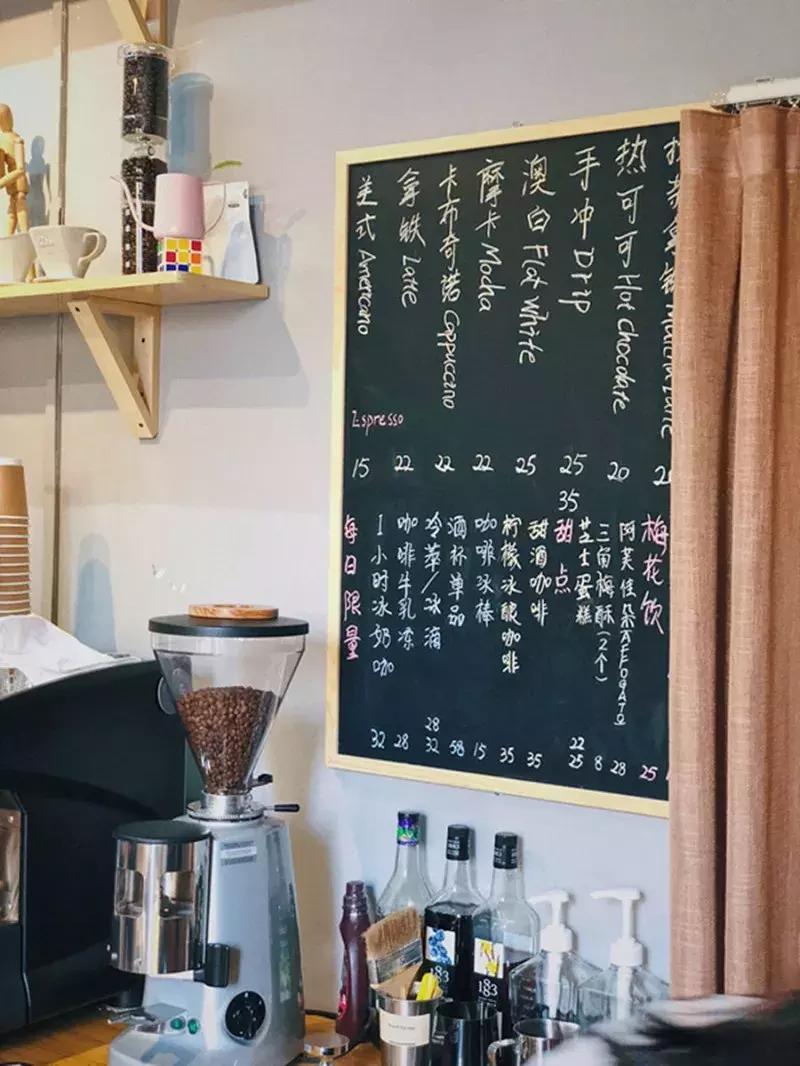 美式 Americano
拿铁 Latte
卡布奇诺 Cappuccino
摩卡 Mocha
澳白 Flat White
手冲 Drip
热可可 Hot Chocolate
Espresso
15
22
22
22
25
25
35
20
每日限量
1小时冰奶咖
咖啡牛乳冻
冷萃/冰滴
酒杯单品
咖啡冰棒
柠檬冰酿咖啡
甜酒咖啡
甜点
芝士蛋糕
三角梅酥(2个)
阿芙佳朵AFFOGATO
梅花饮
32
28
28
32
58
15
35
35
22
25
8
28
25
183
183